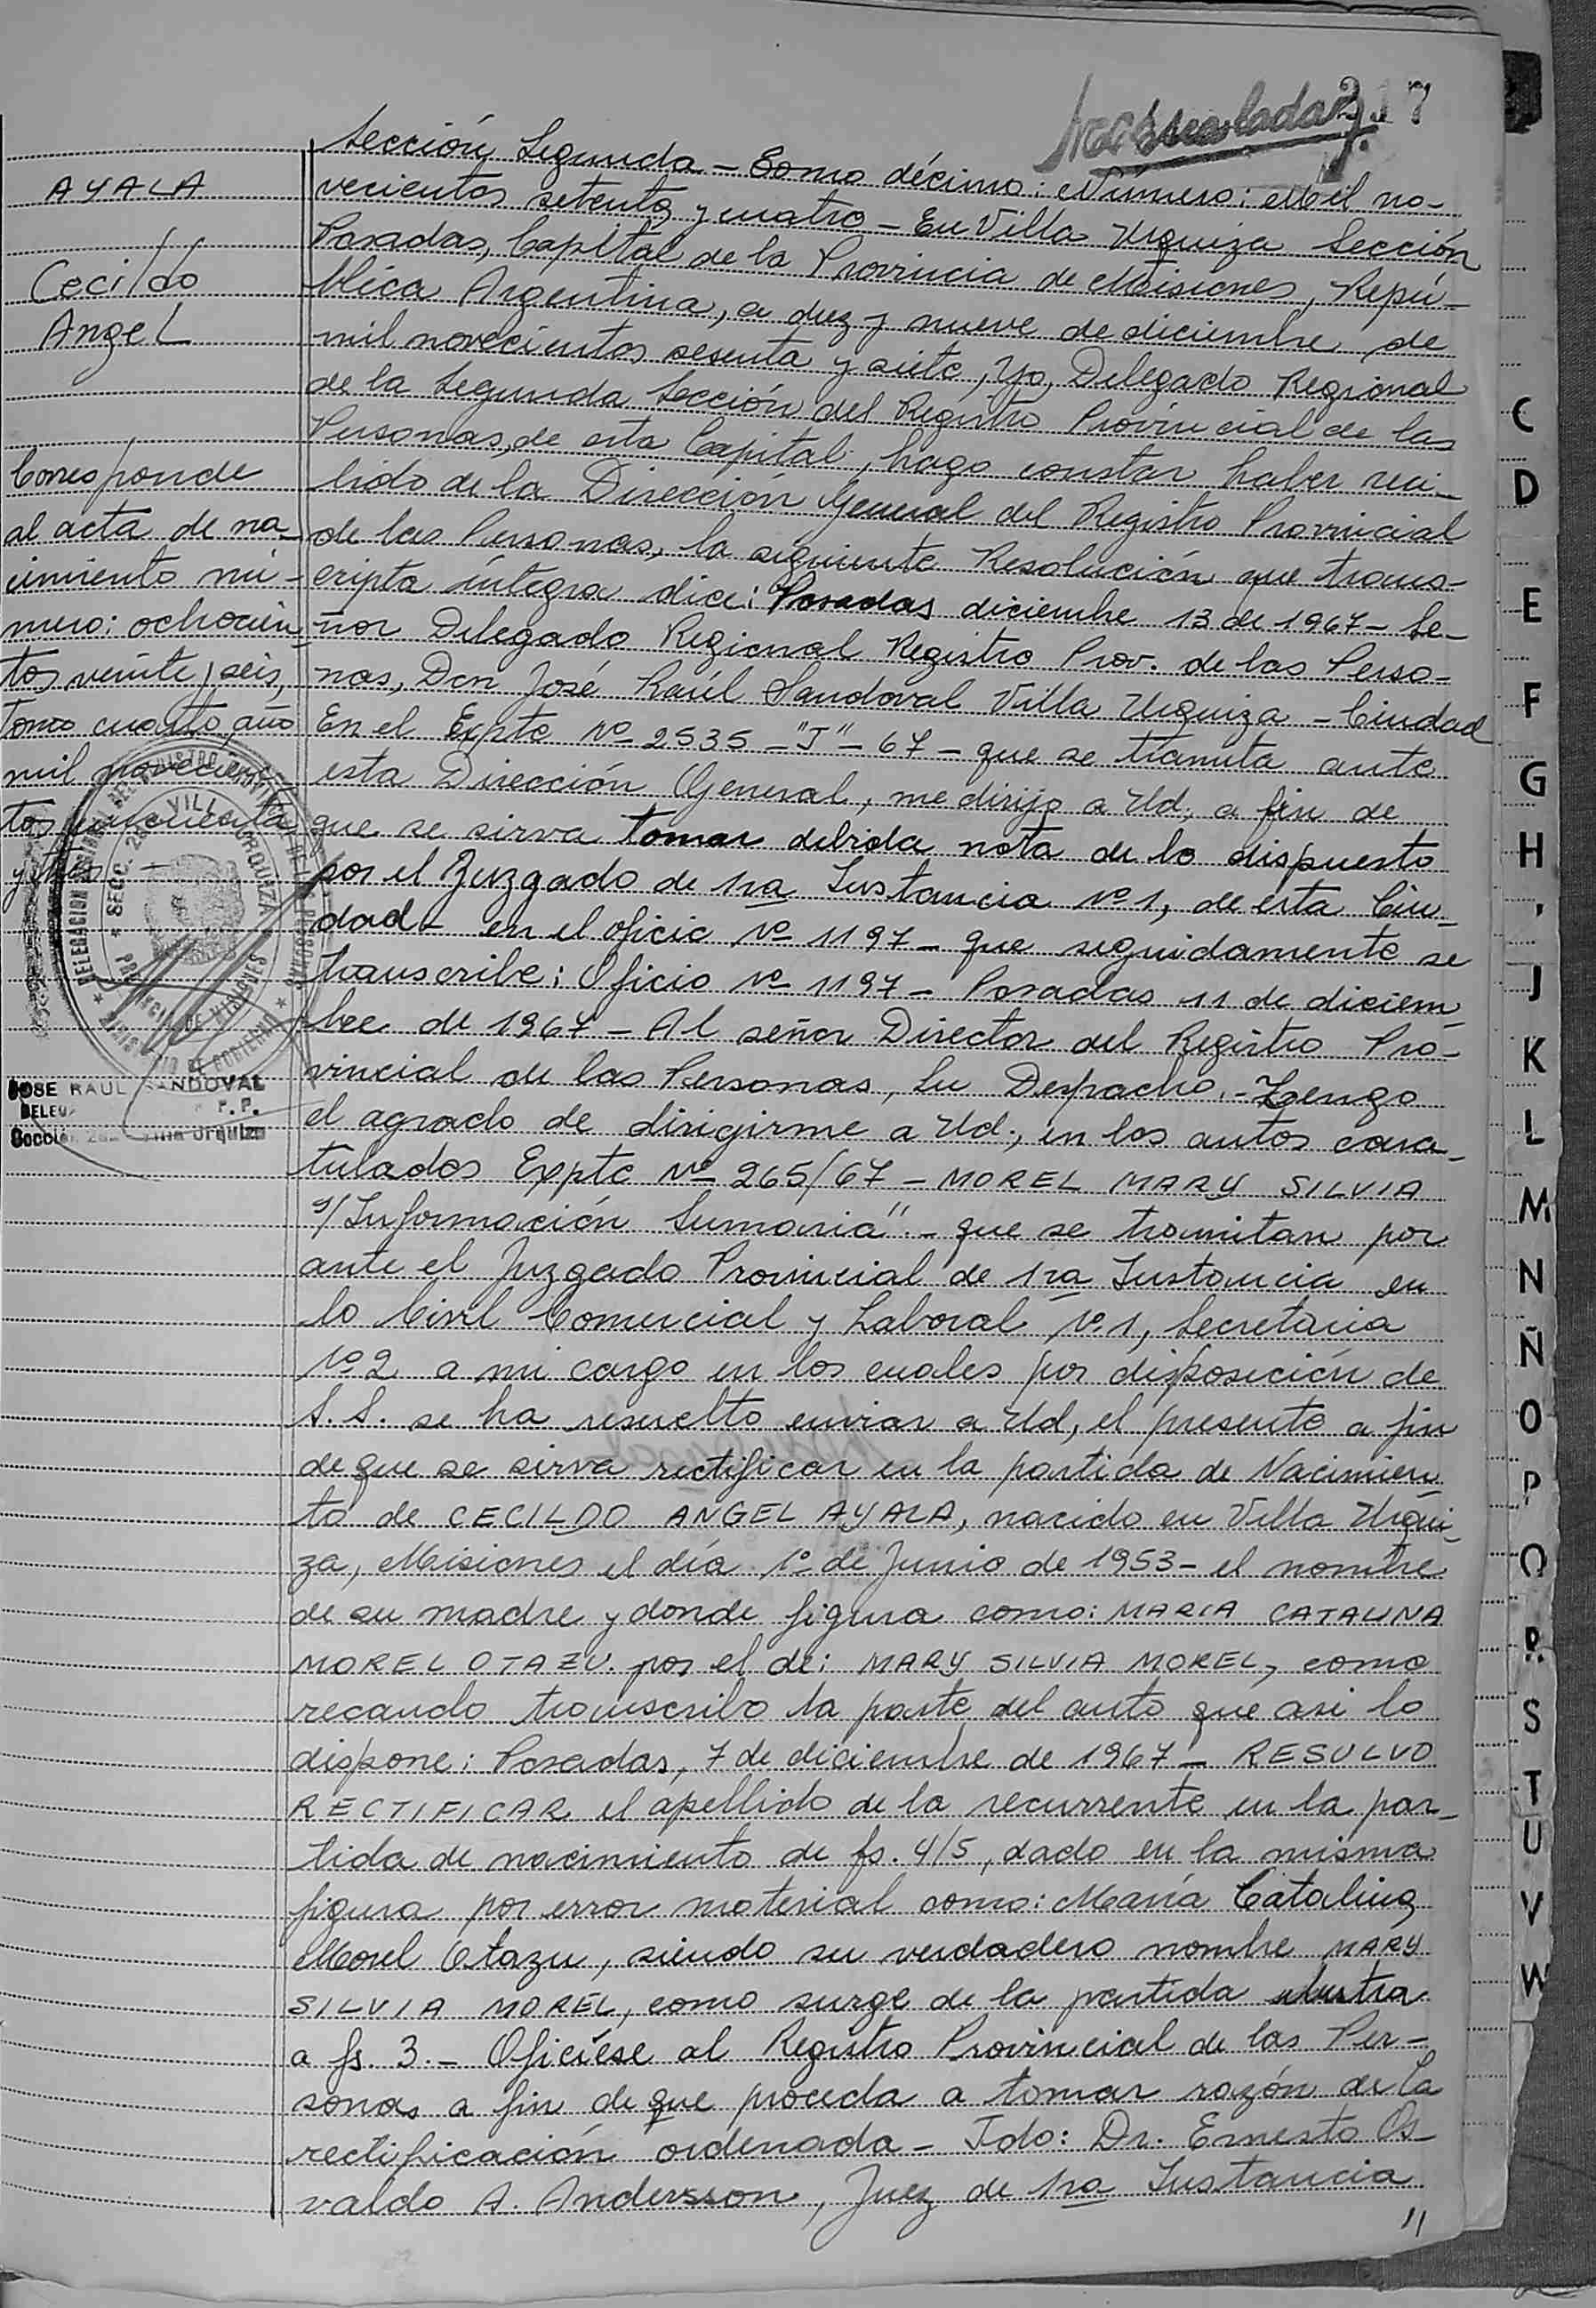 217
Sección Segunda - Tomo décimo: Número: Mil no-
vecientos setenta y cuatro - En Villa Urquiza Sección
Posadas, Capital de la Provincia de Misiones, Repú-
blica Argentina, a diez y nueve de diciembre de
mil novecientos sesenta y siete, Yo, Delegado Regional
de la Segunda Sección del Registro Provincial de las
Personas, de esta Capital, hago constar haber reci-
bido de la Dirección General del Registro Provincial
de las Personas, la siguiente Resolución que trans-
cripta íntegra dice: Posadas diciembre 13 de 1967 - Se-
ñor Delegado Regional Registro Prov. de las Perso-
nas, Don José Raúl Sandoval Villa Urquiza - Ciudad
En el Expte Nº 2535 - "J" - 67 - que se tramita ante
esta Dirección General, me dirijo a Ud, a fin de
que se sirva tomar debida nota de lo dispuesto
por el Juzgado de 1ra Instancia Nº 1, de esta Ciu-
dad - en el oficio Nº 1197 - que seguidamente se
transcribe: Oficio Nº 1197 - Posadas 11 de diciem-
bre de 1967 - Al señor Director del Registro Pro-
vincial de las Personas, Su Despacho. - Tengo
el agrado de dirigirme a Ud., en los autos cara-
tulados Expte Nº 265/67 - MOREL MARY SILVIA
s/Información Sumaria" - que se tramitan por
ante el Juzgado Provincial de 1ra Instancia en
lo Civil Comercial y Laboral Nº 1, Secretaria
Nº 2 a mi cargo en los cuales por disposición de
S.S. se ha resuelto enviar a Ud, el presente a fin
de que se sirva rectificar en la partida de Nacimien-
to de CECILDO ANGEL AYALA, nacido en Villa Urqui-
za, Misiones el día 1º de Junio de 1953 - el nombre
de su madre y donde figura como: MARIA CATALINA
MOREL OTAZU. por el de: MARY SILVIA MOREL, como
recaudo transcribo la parte del auto que asi lo
dispone: Posadas, 7 de diciembre de 1967 - RESULVO
RECTIFICAR el apellido de la recurrente en la par-
tida de nacimiento de fs. 4/5, dado en la misma
figura por error material como: María Catalina
Morel Otazu, siendo su verdadero nombre MARY
SILVIA MOREL, como surge de la partida
a fs. 3. - Ofíciese al Registro Provincial de las Per-
sonas a fin de que proceda a tomar razón de la
rectificación ordenada - Fdo: Dr. Ernesto Os-
valdo A. Andersson, Juez de 1ra Instancia
//
AYALA
Cecildo
Angel
Corresponde
al acta de na-
cimiento nú-
mero: ochocien-
tos veinte y seis,
tomo cuarto, año
mil novecien-
tos cincuenta
y tres
SECC. 2da VILLA URQUIZA
PROVINCIA DE MISIONES
MINISTERIO DE GOBIERNO
JOSE RAUL SANDOVAL
P.P.
Sección 2da Villa Urquiza
C
D
E
F
G
H
I
J
K
L
M
N
Ñ
O
P
Q
R
S
T
U
V
W